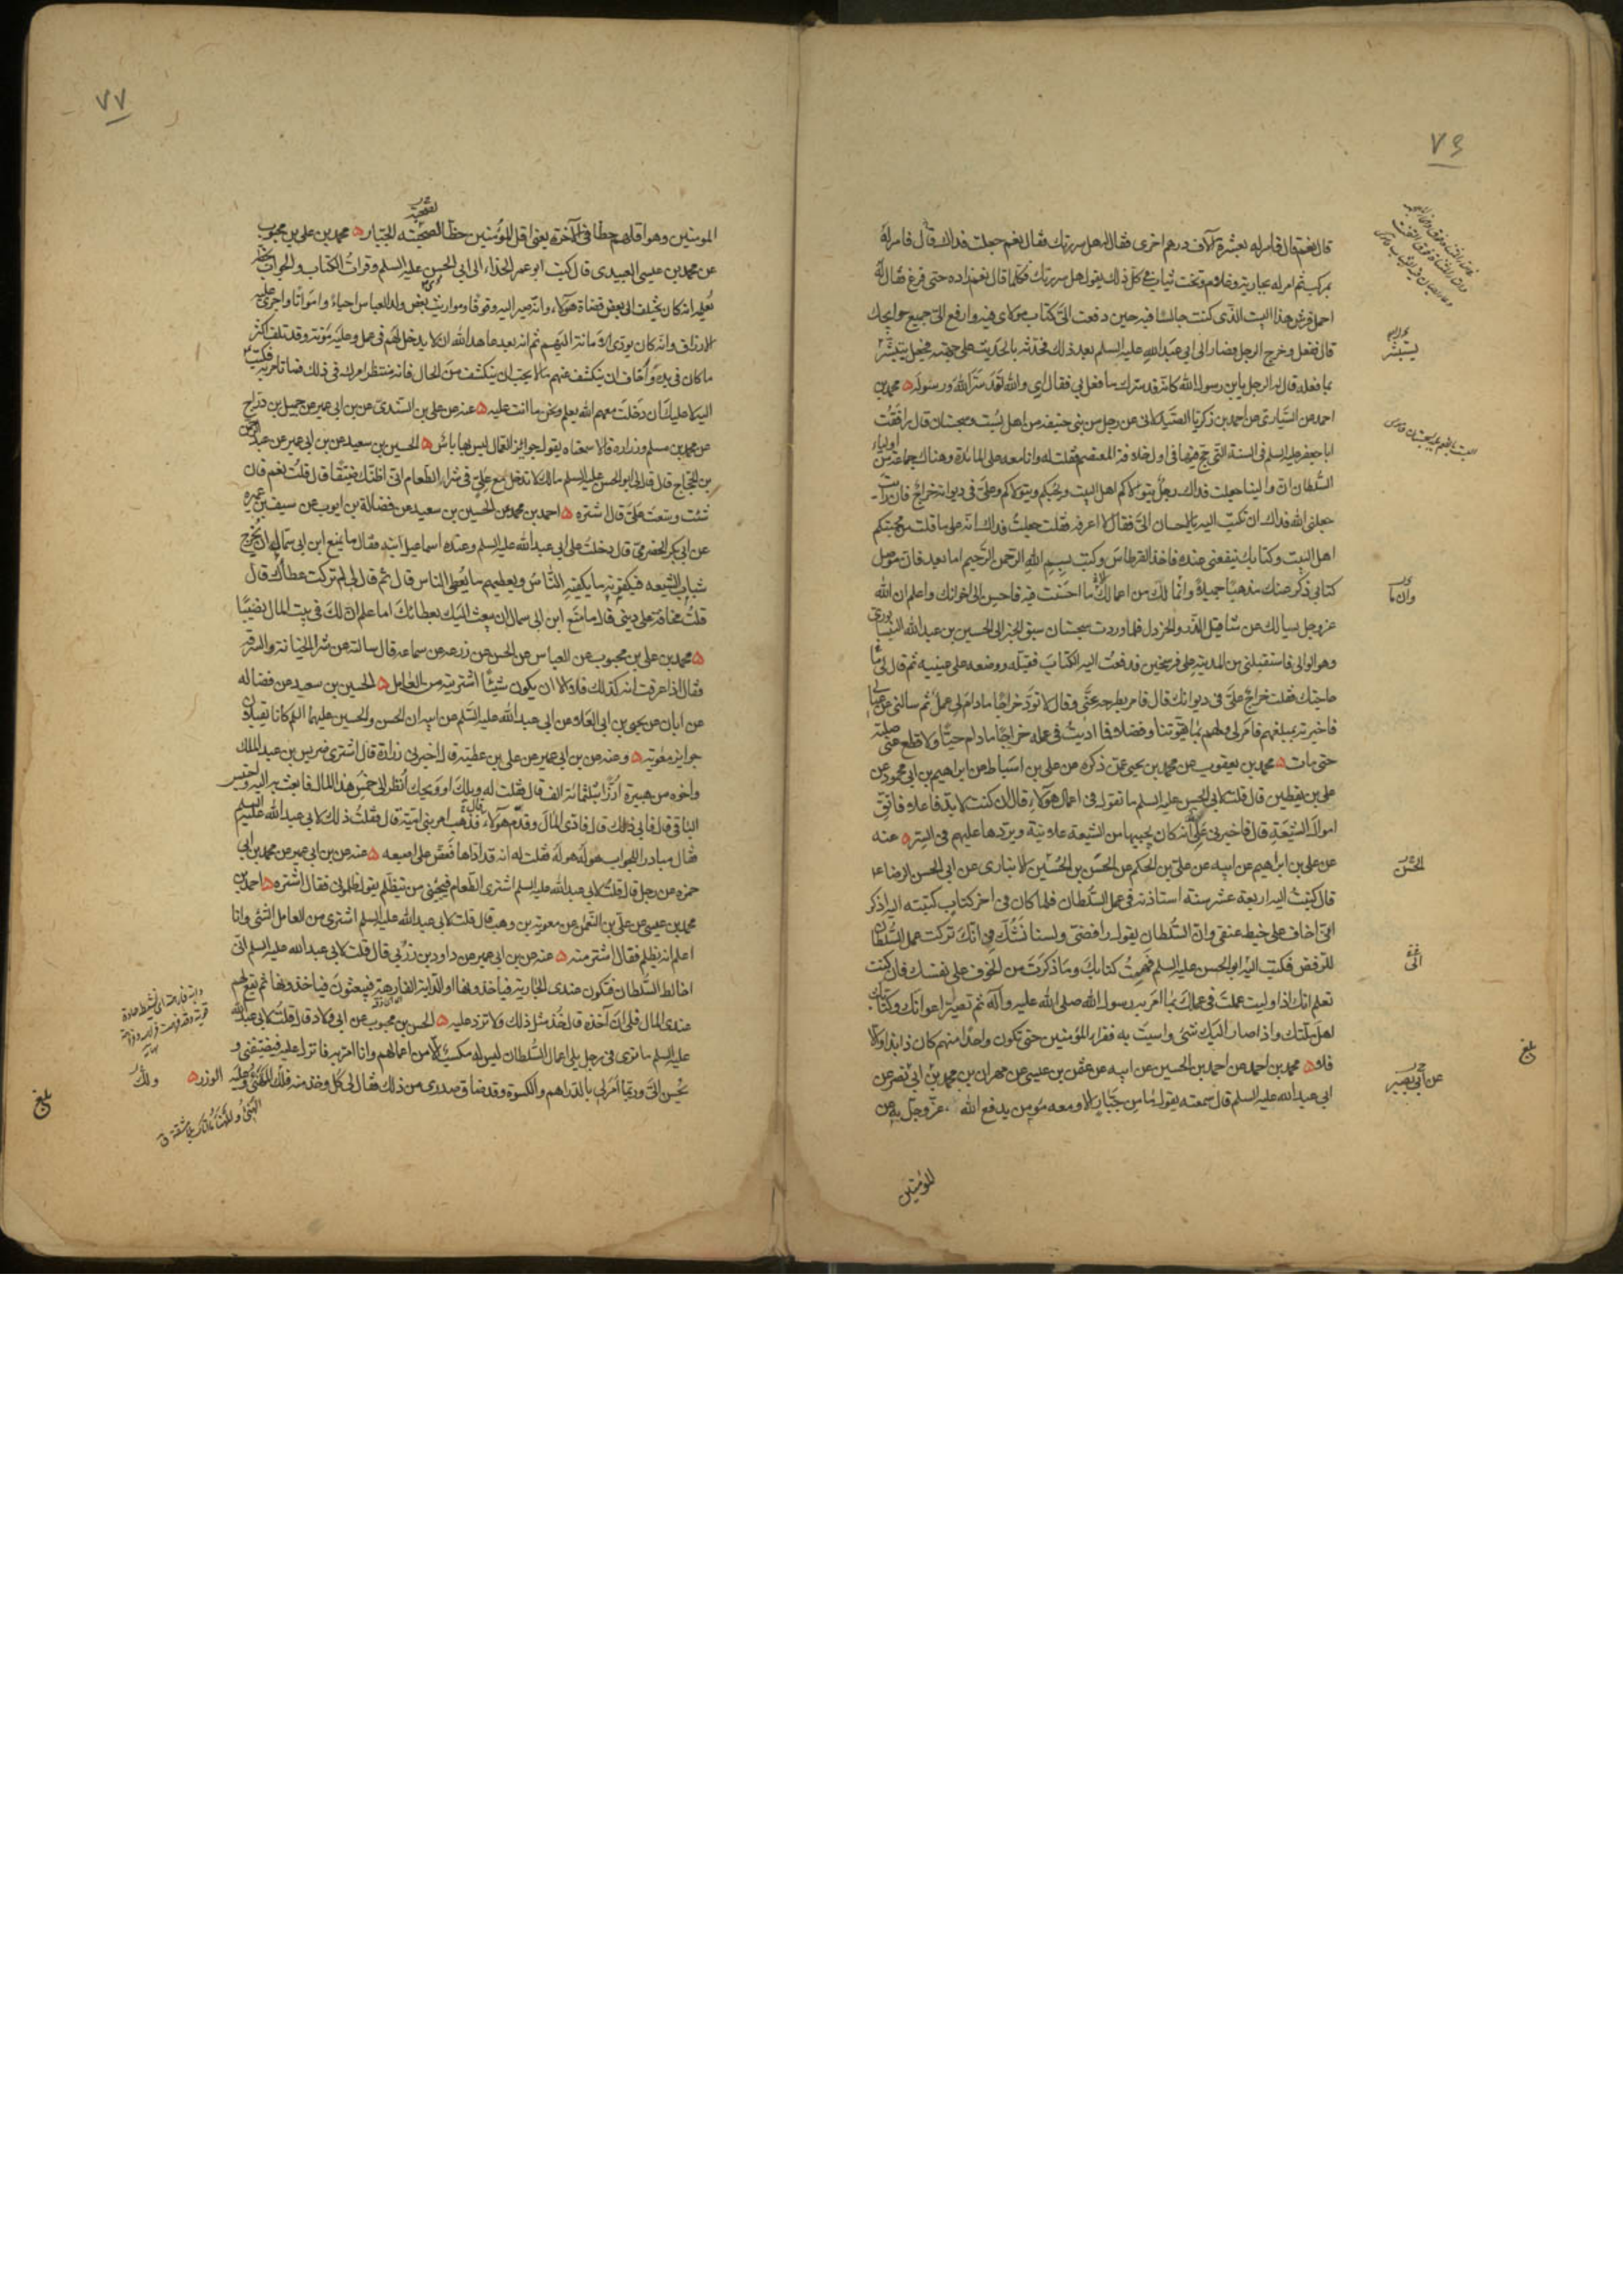 ٧٦
قال نعم قال فامر له بعشرة آلاف درهم اخرى فقال له هل سررتك فقال نعم جعلت فداك قال فامر له
بمركب ثم امر له بجارية وغلام وتخت ثياب في كل ذلك يقول هل سررتك فكلما قال نعم زاده حتى فرغ فقال له
احمل فرش هذا البيت الذي كنت جالسا فيه حين دفعت الىّ كتاب مولاى فيه وارفع الىّ جميع حوايجك
قال ففعل وخرج الرجل فصار الى ابي عبد الله عليه السلم بعد ذلك فحدثه بالحديث على جهته فجعل يستبشر
بما فعله قال له الرجل يابن رسول الله كانه قد سرّك ما فعل بي فقال اى والله لقد سرّ الله ورسوله محمد بن
احمد عن السياري عن احمد بن زكريا الصيدلاني عن رجل من بني حنيفه من اهل بست وسجستان قال رافقت
ابا جعفر عليه السلم في السنة التي حج فيها في اول خلافة المعتصم فقلت له وانا معه على المائدة وهناك جماعة من اولياء
السلطان ان والينا جعلت فداك رجل يتولاكم اهل البيت ويحبكم وعلىّ في ديوانه خراج فان رايت
جعلني الله فداك ان تكتب اليه بالاحسان الىّ فقال لا اعرفه فقلت جعلت فداك انه على ما قلت من محبتكم
اهل البيت وكتابك ينفعني عنده فاخذ القرطاس وكتب بسم الله الرحمن الرحيم اما بعد فان موصل
كتابي ذكر عنك مذهبا جميلا وانما لك من اعمالك ما احسنت فيه فاحسن الى اخوانك واعلم ان الله
عز وجل سايلك عن مثاقيل الذر والخردل فلما وردت سجستان سبق الخبر الى الحسين بن عبد الله النيسابوري
وهو الوالي فاستقبلني من المدينة على فرسخين فدفعت اليه الكتاب فقبّله ووضعه على عينيه ثم قال لي ما
حاجتك فقلت خراج علىّ في ديوانك قال فامر بطرحه عنّي وقال لا تؤد خراجا مادام لي عمل ثم سالني عن عيالي
فاخبرته بمبلغهم فامر لي ولهم بما يقوتنا وفضلا فما اديت في عمله خراجا مادام حيّا ولا قطع عني صلته
حتى مات محمد بن يعقوب عن محمد بن يحيى عمن ذكره عن علي بن اسباط عن ابراهيم بن ابي محمود عن
علي بن يقطين قال قلت لابي الحسن عليه السلم ما تقول في اعمال هؤلاء قال ان كنت لا بدّ فاعلا فاتق
اموال الشيعة قال فاخبرني علي انه كان يجبيها من الشيعة علانية ويردها عليهم في السر عنه
عن علي بن ابراهيم عن ابيه عن علي بن الحكم عن الحسن بن الحسين الانباري عن ابي الحسن الرضا ع
قال كتبت اليه اربعة عشر سنة استاذنه في عمل السلطان فلما كان في اخر كتاب كتبته اليه اذكر
اني اخاف على خيط عنقي وان السلطان يقول رافضي ولسنا نشك في انك تركت عمل السلطان
للترفض فكتب اليّ ابو الحسن عليه السلم فهمت كتابك وما ذكرت من الخوف على نفسك فان كنت
تعلم انك اذا وليت عملت في عملك بما امر به رسول الله صلى الله عليه وآله ثم تصير اعوانك وكتابك
اهل ملتك واذا صار اليك شئ واسيت به فقراء المؤمنين حتى تكون واحدا منهم كان ذا بذا والا
فلا محمد بن احمد عن احمد بن الحسين عن ابيه عن عثمن بن عيسى عن مهران بن محمد بن ابي نصر عن
ابي عبد الله عليه السلم قال سمعته يقول ما من جبّار الا ومعه مومن يدفع الله عز وجل به عن
المؤمنين
يستبشر
وان ما
الحسن
عن ابي بصير
بلغ
٧٧
المومنين وهو اقلهم حظا في الآخرة يعني اقل المؤمنين حظا لصحبته الجبار محمد بن علي بن محبوب
عن محمد بن عيسى العبيدي قال كتب ابو عمر الحذاء الى ابي الحسن عليه السلم وقرات الكتاب والجواب بخطه
يعلمه انه كان يختلف الى بعض قضاة هؤلاء وانه صير اليه وقوفا ومواريث بعض ولد العباس احياء وامواتا واجرى عليه
الارزاق وانه كان يؤدى الامانة اليهم ثم انه بعد عاهد الله ان لا يدخل لهم في عمل وعليه مؤنة وقد تلف اكثر
ما كان في يده واخاف ان ينكشف عنهم ما لا يحب ان ينكشف من الحال فانه منتظر امرك في ذلك فما تامر به فكتب
اليه لا عليك ان دخلت معهم الله يعلم ونحن ما انت عليه عنه عن علي بن السندي عن بن ابي عمير عن جميل بن دراج
عن محمد بن مسلم وزراره قالا سمعناه يقول جوايز العمال ليس بها باس الحسين بن سعيد عن بن ابي عمير عن عبد الرحمن
بن الحجاج قال قال لى ابو الحسن عليه السلم مالك لا تدخل مع علي في شراء الطعام اني اظنك ضيقا قال قلت نعم فان
شئت وسعت علىّ قال اشتره احمد بن محمد عن الحسين بن سعيد عن فضالة بن ايوب عن سيف بن عميرة
عن ابي بكر الحضرمي قال دخلت على ابي عبد الله عليه السلم وعنده اسماعيل ابنه فقال ما يمنع ابن ابي سمال ان يخرج
شباب الشيعه فيكفونه ما يكفيه الناس ويعطيهم ما يعطي الناس قال ثم قال لي لم تركت عطاك قال
قلت مخافة على ديني قال ما منع ابن ابي سمال ان يبعث اليك بعطائك اما علم ان لك في بيت المال نصيبا
محمد بن علي بن محبوب عن العباس عن الحسن عن زرعه عن سماعه قال سالته عن شرا الخيانة والسرقه
فقال اذا عرفت انه كذلك فلا الا ان يكون شيئا اشتريته من العامل الحسين بن سعيد عن فضاله
عن ابان عن يحيى بن ابي العلا عن ابي عبد الله عليه السلم عن ابيه ان الحسن والحسين عليهما السلم كانا يقبلان
جوايز معوية وعنه عن بن ابي عمير عن علي بن عطية قال اخبرني زرارة قال اشترى ضريس بن عبد الملك
واخوه من هبيرة ارزا بثلثمائة الف قال فقلت له ويلك او ويحك انظر الى خمس هذا المال فابعث به اليه واحتبس
الباقي قال فابى ذلك قال فادى المال وقدم هؤلاء فذهب امر بني امية قال فقلت ذلك لابي عبد الله عليه السلم
فقال مبادر للجواب هو له هو له فقلت له انه قد اداها فعض على اصبعه عنه عن بن ابي عمير عن محمد بن ابي
حمزه عن رجل قال قلت لابي عبد الله عليه السلم اشترى الطعام فيجيئني من يتظلم يقول ظلموني فقال اشتره احمد بن
محمد بن عيسى عن علي بن النعمان عن معوية بن وهب قال قلت لابي عبد الله عليه السلم اشترى من العامل الشئ وانا
اعلم انه يظلم فقال اشتر منه عنه عن بن ابي عمير عن داود بن زربي قال قلت لابي عبد الله عليه السلم اني
اخالط السلطان فتكون عندي الجارية فياخذونها او الدابة الفارهة فيبعثون فياخذونها ثم يقع لهم
عندى المال فلى ان آخذه قال خذ مثل ذلك ولا تزد عليه الحسن بن محبوب عن ابي ولاد قال قلت لابي عبد الله
عليه السلم ما ترى في رجل يلي اعمال السلطان ليس له مكسب الا من اعمالهم وانا امر به فانزل عليه فيضيفني و
يحسن الىّ وربما امر لي بالدراهم والكسوة وقد ضاق صدري من ذلك فقال لي كل وخذ منه فلك المهنى وعليه الوزر
ولك
بلغ